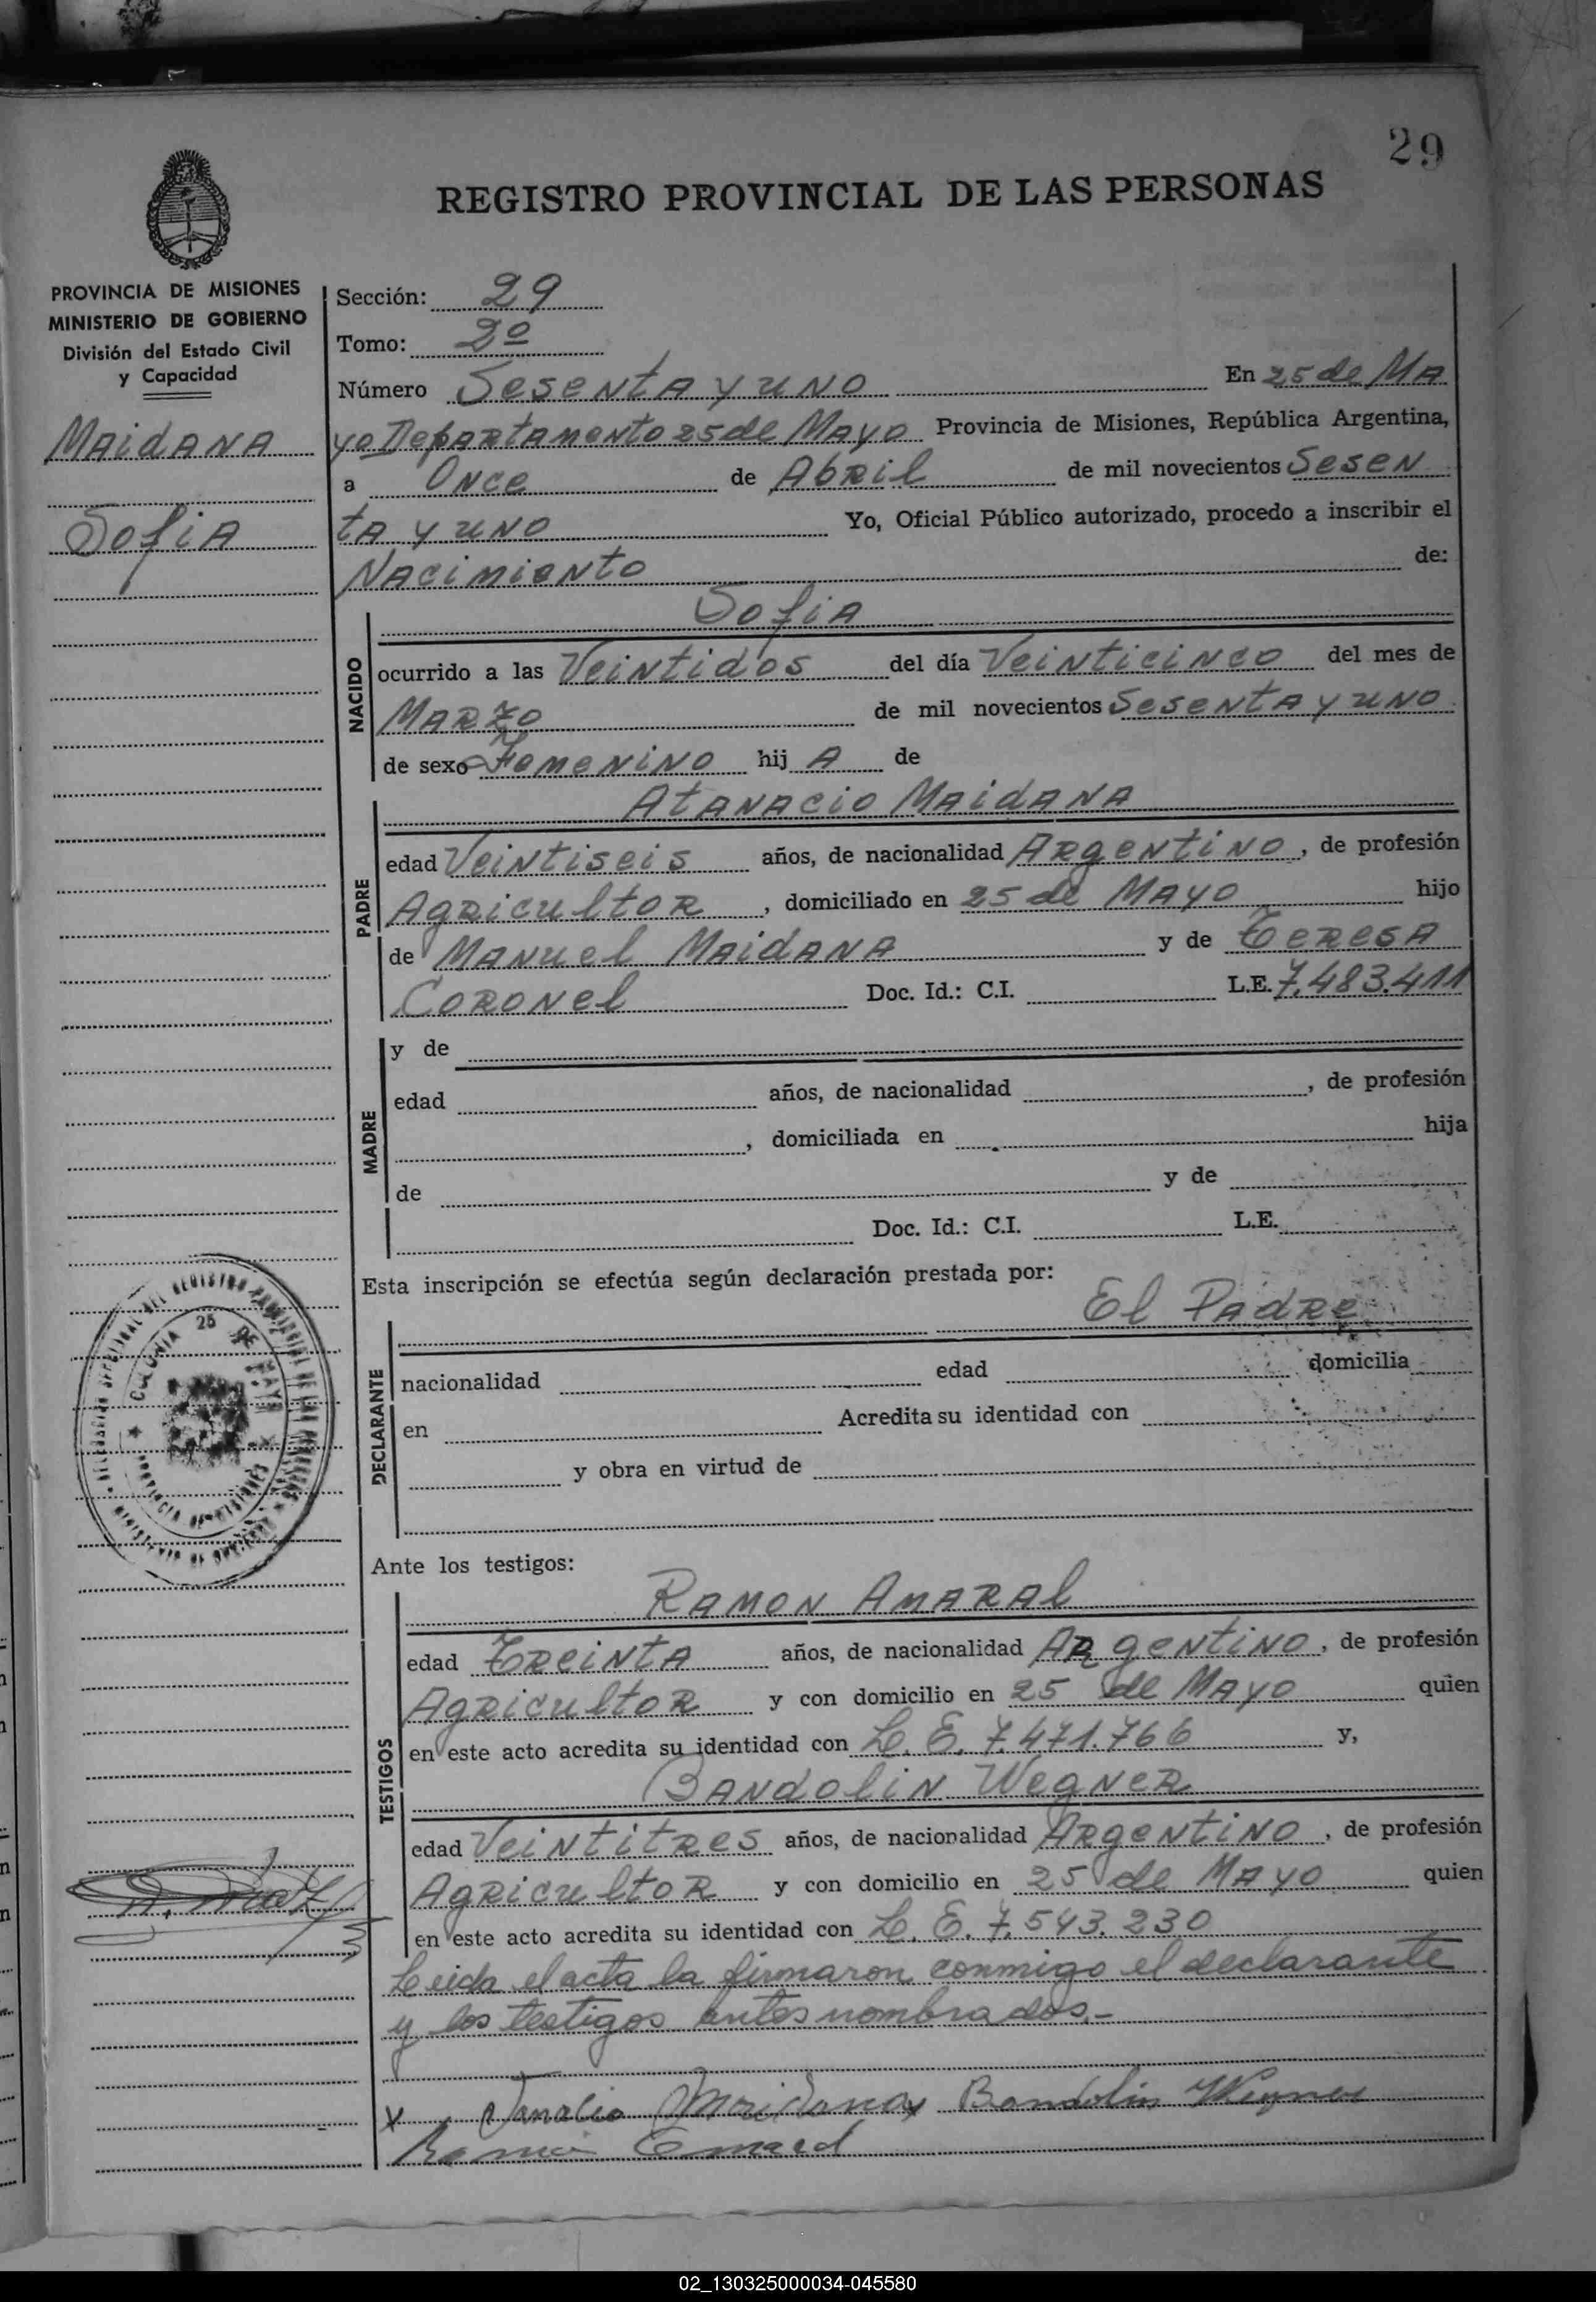 29
REGISTRO PROVINCIAL DE LAS PERSONAS
PROVINCIA DE MISIONES
MINISTERIO DE GOBIERNO
División del Estado Civil
y Capacidad
Maidana
Sofia
Sección: 29
Tomo: 2º
Número Sesenta y uno En 25 de Ma
yo Departamento 25 de Mayo Provincia de Misiones, República Argentina,
a Once de Abril de mil novecientos Sesen
ta y uno Yo, Oficial Público autorizado, procedo a inscribir el
Nacimiento de:
Sofia
NACIDO
ocurrido a las Veintidos del día Veinticinco del mes de
Marzo de mil novecientos Sesenta y uno
de sexo Femenino hij A de
Atanacio Maidana
PADRE
edad Veintiseis años, de nacionalidad Argentino, de profesión
Agricultor, domiciliado en 25 de Mayo hijo
de Manuel Maidana y de Teresa
Coronel Doc. Id.: C.I. L.E. 7.483.411
MADRE
y de
edad años, de nacionalidad , de profesión
, domiciliada en hija
de y de
Doc. Id.: C.I. L.E.
Esta inscripción se efectúa según declaración prestada por:
El Padre
DECLARANTE
nacionalidad edad domicilia
en Acredita su identidad con
y obra en virtud de
COLONIA 25 DE MAYO
PROVINCIA DE MISIONES
Ante los testigos:
Ramon Amaral
TESTIGOS
edad Treinta años, de nacionalidad Argentino, de profesión
Agricultor y con domicilio en 25 de Mayo quien
en este acto acredita su identidad con L. E. 7.471.766 y,
Bandolin Wegner
edad Veintitres años, de nacionalidad Argentino, de profesión
Agricultor y con domicilio en 25 de Mayo quien
en este acto acredita su identidad con L. E. 7.543.230
Leida el acta la firmaron conmigo el declarante
y los testigos antes nombrados.-
x Maidana x Bandolin Wegner
02_130325000034-045580